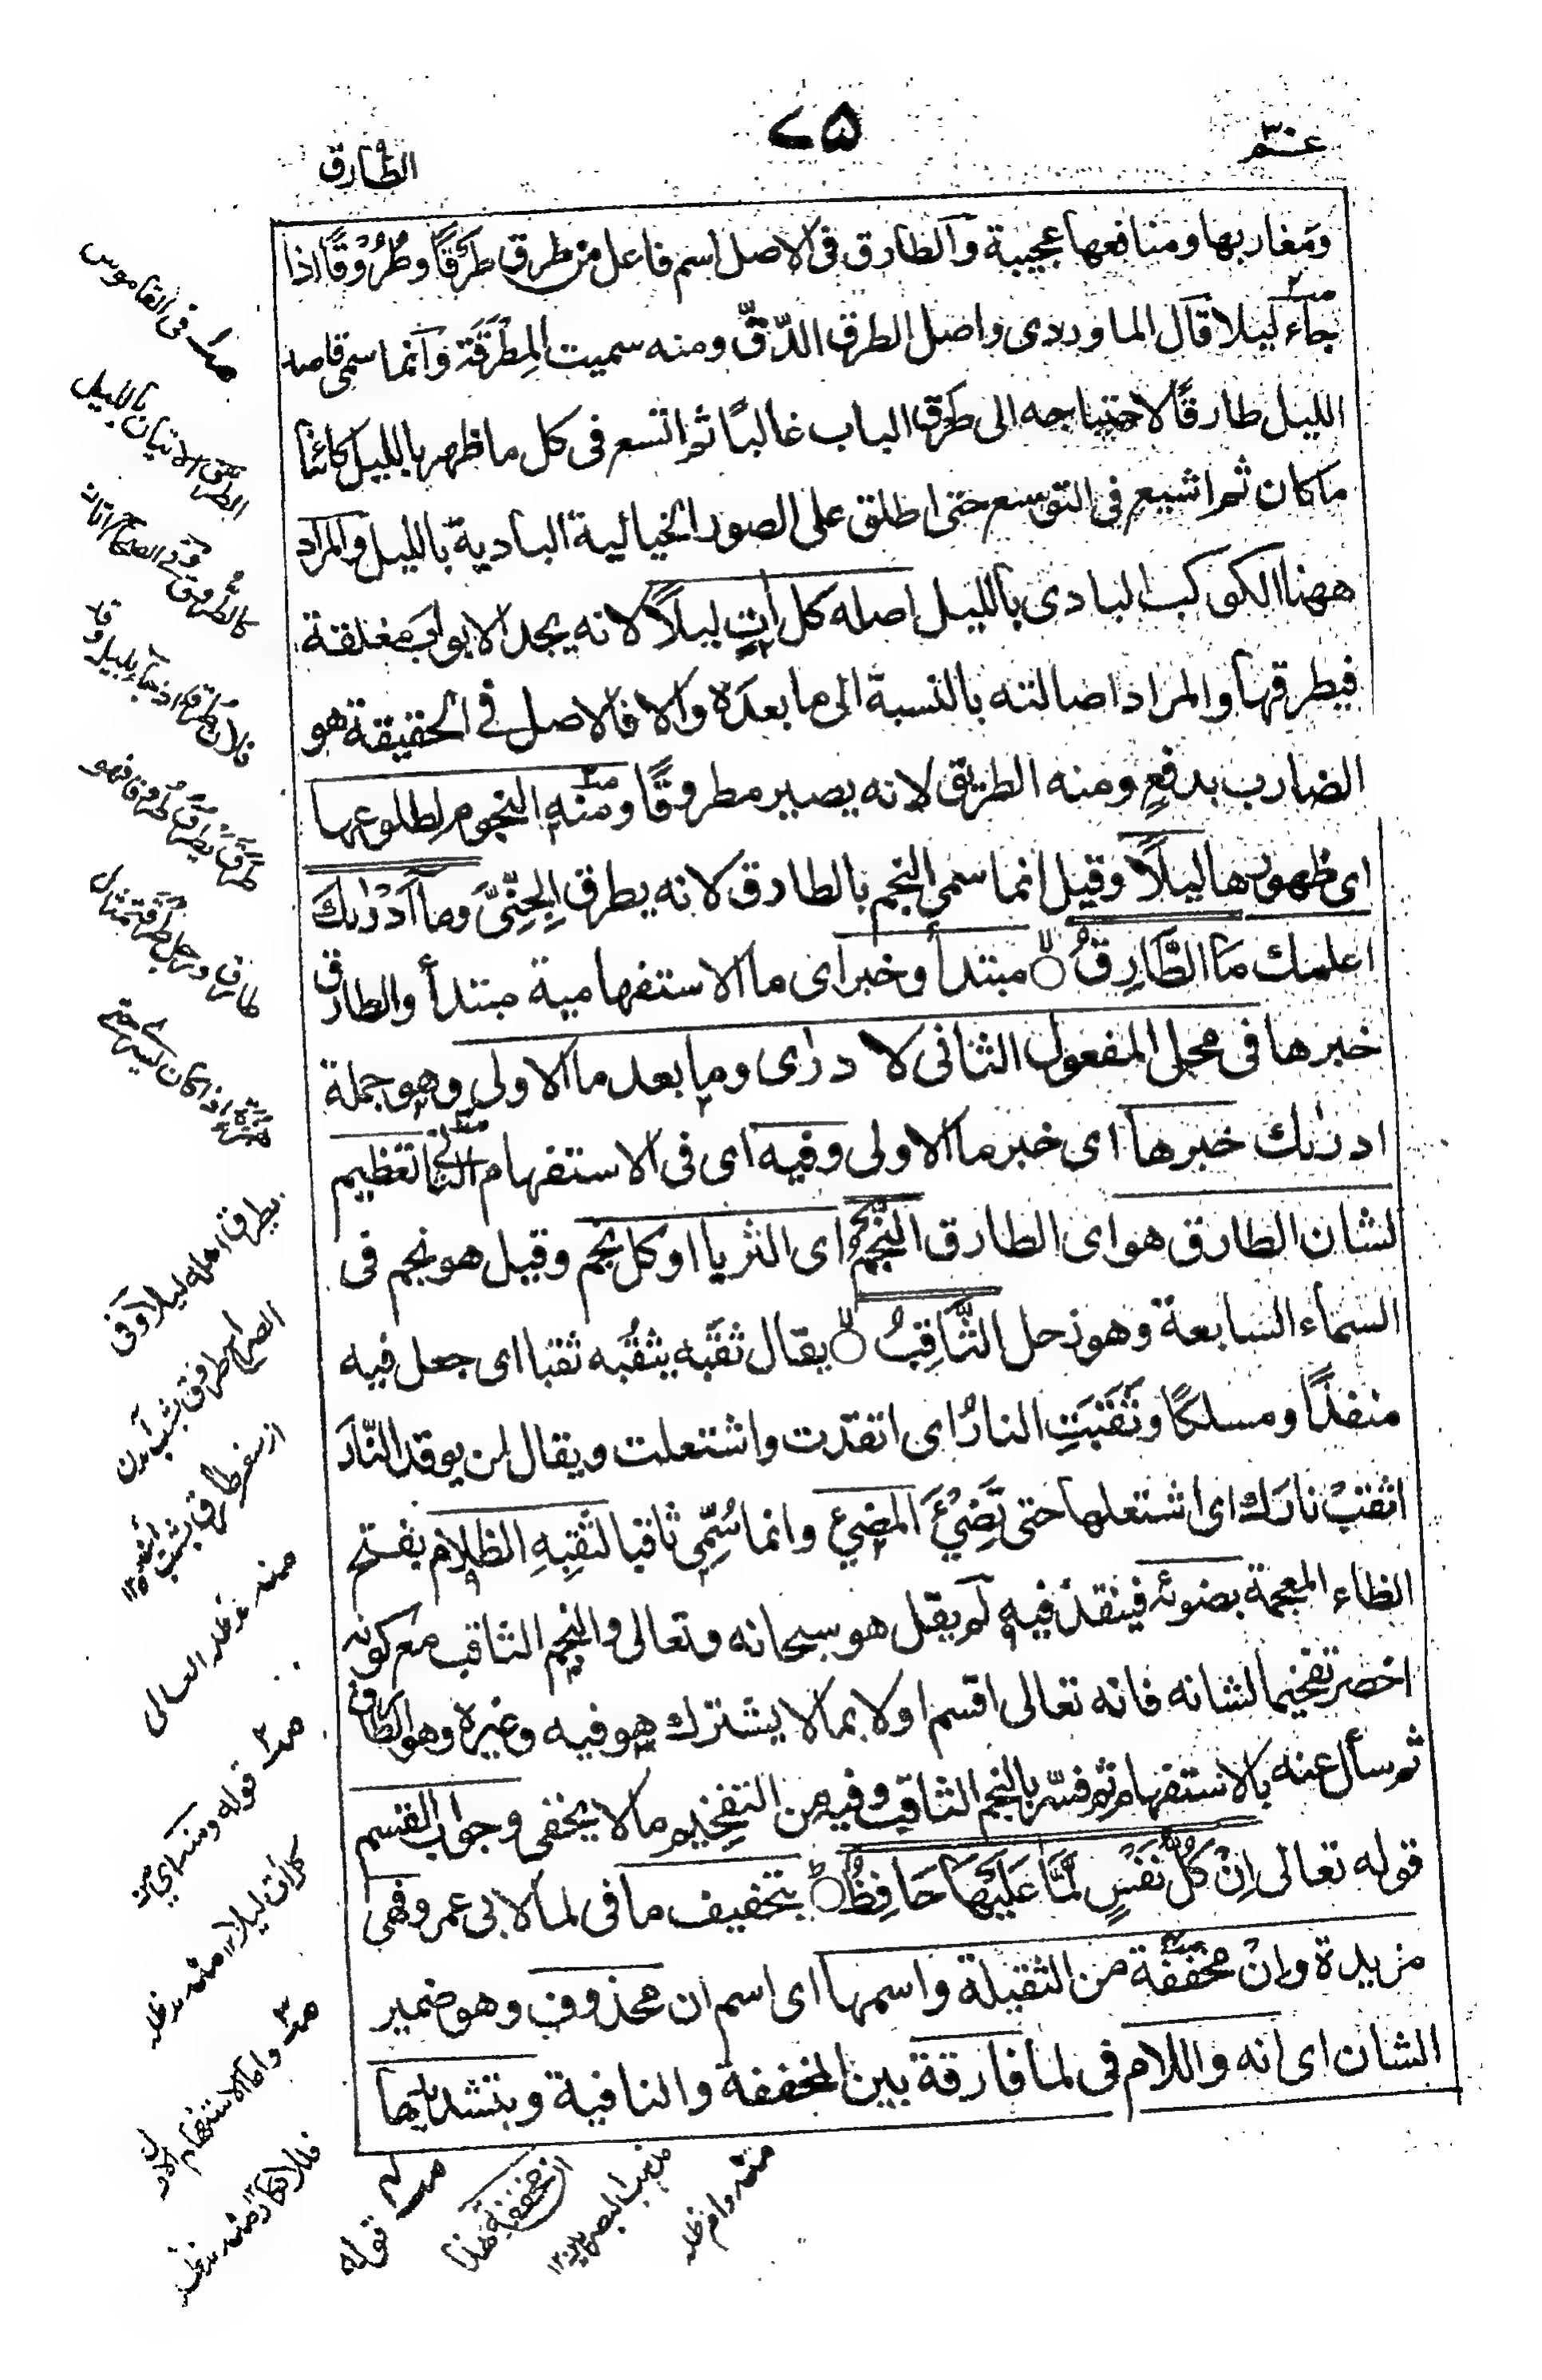 عم٣٠
٧٥
الطارق
ومغاربها ومنافعها عجيبة والطارق فى الاصل اسم فاعل من طرق طَرْقًا وطُرُوْقًا اذا
جاء ليلا قال الماوردى واصل الطرق الدَّقُّ ومنه سميت المِطْرَقَة وانما سمى قاصد
الليل طارقًا لاحتياجه الى طَرْق الباب غالبًا ثم اتسع فى كل ما ظهر بالليل كائنا
ما كان ثم اشيع فى التوسع حتى اطلق على الصور الخيالية البادية بالليل والمراد
ههنا الكوكب البادى بالليل اصله كل اٰتٍ ليلًا لانه يجد الابواب مغلقة
فيطرقها والمراد اصالته بالنسبة الى ما بعدَهٗ والا فالاصل فى الحقيقة هو
الضارب بدفعٍ ومنه الطريق لانه يصير مطروقًا ومنه النجوم لطلوعها
اى ظهورها ليلًا وقيل انما سمى النجم بالطارق لانه يطرق الجِنِّىَّ وَمَاۤ اَدْرٰىكَ
اعلمك مَا الطَّارِقُ ۙ مبتدأ وخبر اى ما الاستفهامية مبتدأ والطارق
خبرها فى محل المفعول الثانى لادرٰى وما بعد ما الاولى وهو جملة
ادرٰىك خبرها اى خبر ما الاولى وفيه اى فى الاستفهام الثانى تعظيم
لشان الطارق هو اى الطارق النَّجْمُ اى الثريا او كل نجم وقيل هو نجم فى
السماء السابعة وهو زحل الثَّاقِبُ ۙ يقال ثقَبَه يثقُبُه ثقبا اى جعل فيه
منفذًا ومسلكًا وثَقَبَتِ النارُ اى اتقدت واشتعلت ويقال لمن يوقد النّارَ
اثقبْ نارَك اى اشتعلها حتى تَضِيْئَ المضيئ وانما سُمِّى ثاقبا لثَقبِهِ الظلام بفتح
الظاء المعجمة بضوئه فينفذ فيه لم يقل هو سبحانه وتعالى والنجم الثاقب مع كونه
اخصر تفخيما لشانه فانه تعالى اقسم اولا بما لا يشترك هو فيه وغيره وهو الطارق
ثم سأل عنه بالاستفهام ثم فسّر بالنجم الثاقب وفيه من التفخيم ما لا يخفى وجواب القسم
قوله تعالى اِنْ كُلُّ نَفْسٍ لَّمَّا عَلَيْهَا حَافِظٌ ؕ بتخفيف ما فى لما لابى عمرو فهى
مزيدة وانْ مخففة من الثقيلة واسمها اى اسم ان محذوف وهو ضمير
الشان اى انه واللام فى لما فارقة بين المخففة والنافية وبتشديدها
فى القاموس
الطرق الاتيان بالليل
كالطُّروق وفى الصحاح اتانا
بطرق اهله ليلًا وفى
الصراح طروق بشب آمدن
منه مد ظله العالى
قوله ومنه اى من
كل اٰت ليلا ١٢ منه مد ظله
واما الاستفهام الاول
قوله
ان مخففة هذا
مذهب البصريين ١٢
منه دام ظله